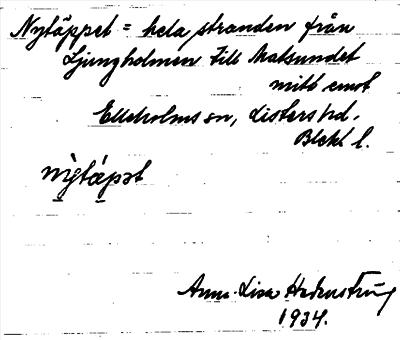 Nytäppet = hela stranden från
Ljungholmen till Matsundet
mitt emot
Elleholms sn, Listers hd.
Blek l.
nỳtæ̀pət
Anna-Lisa
1934.